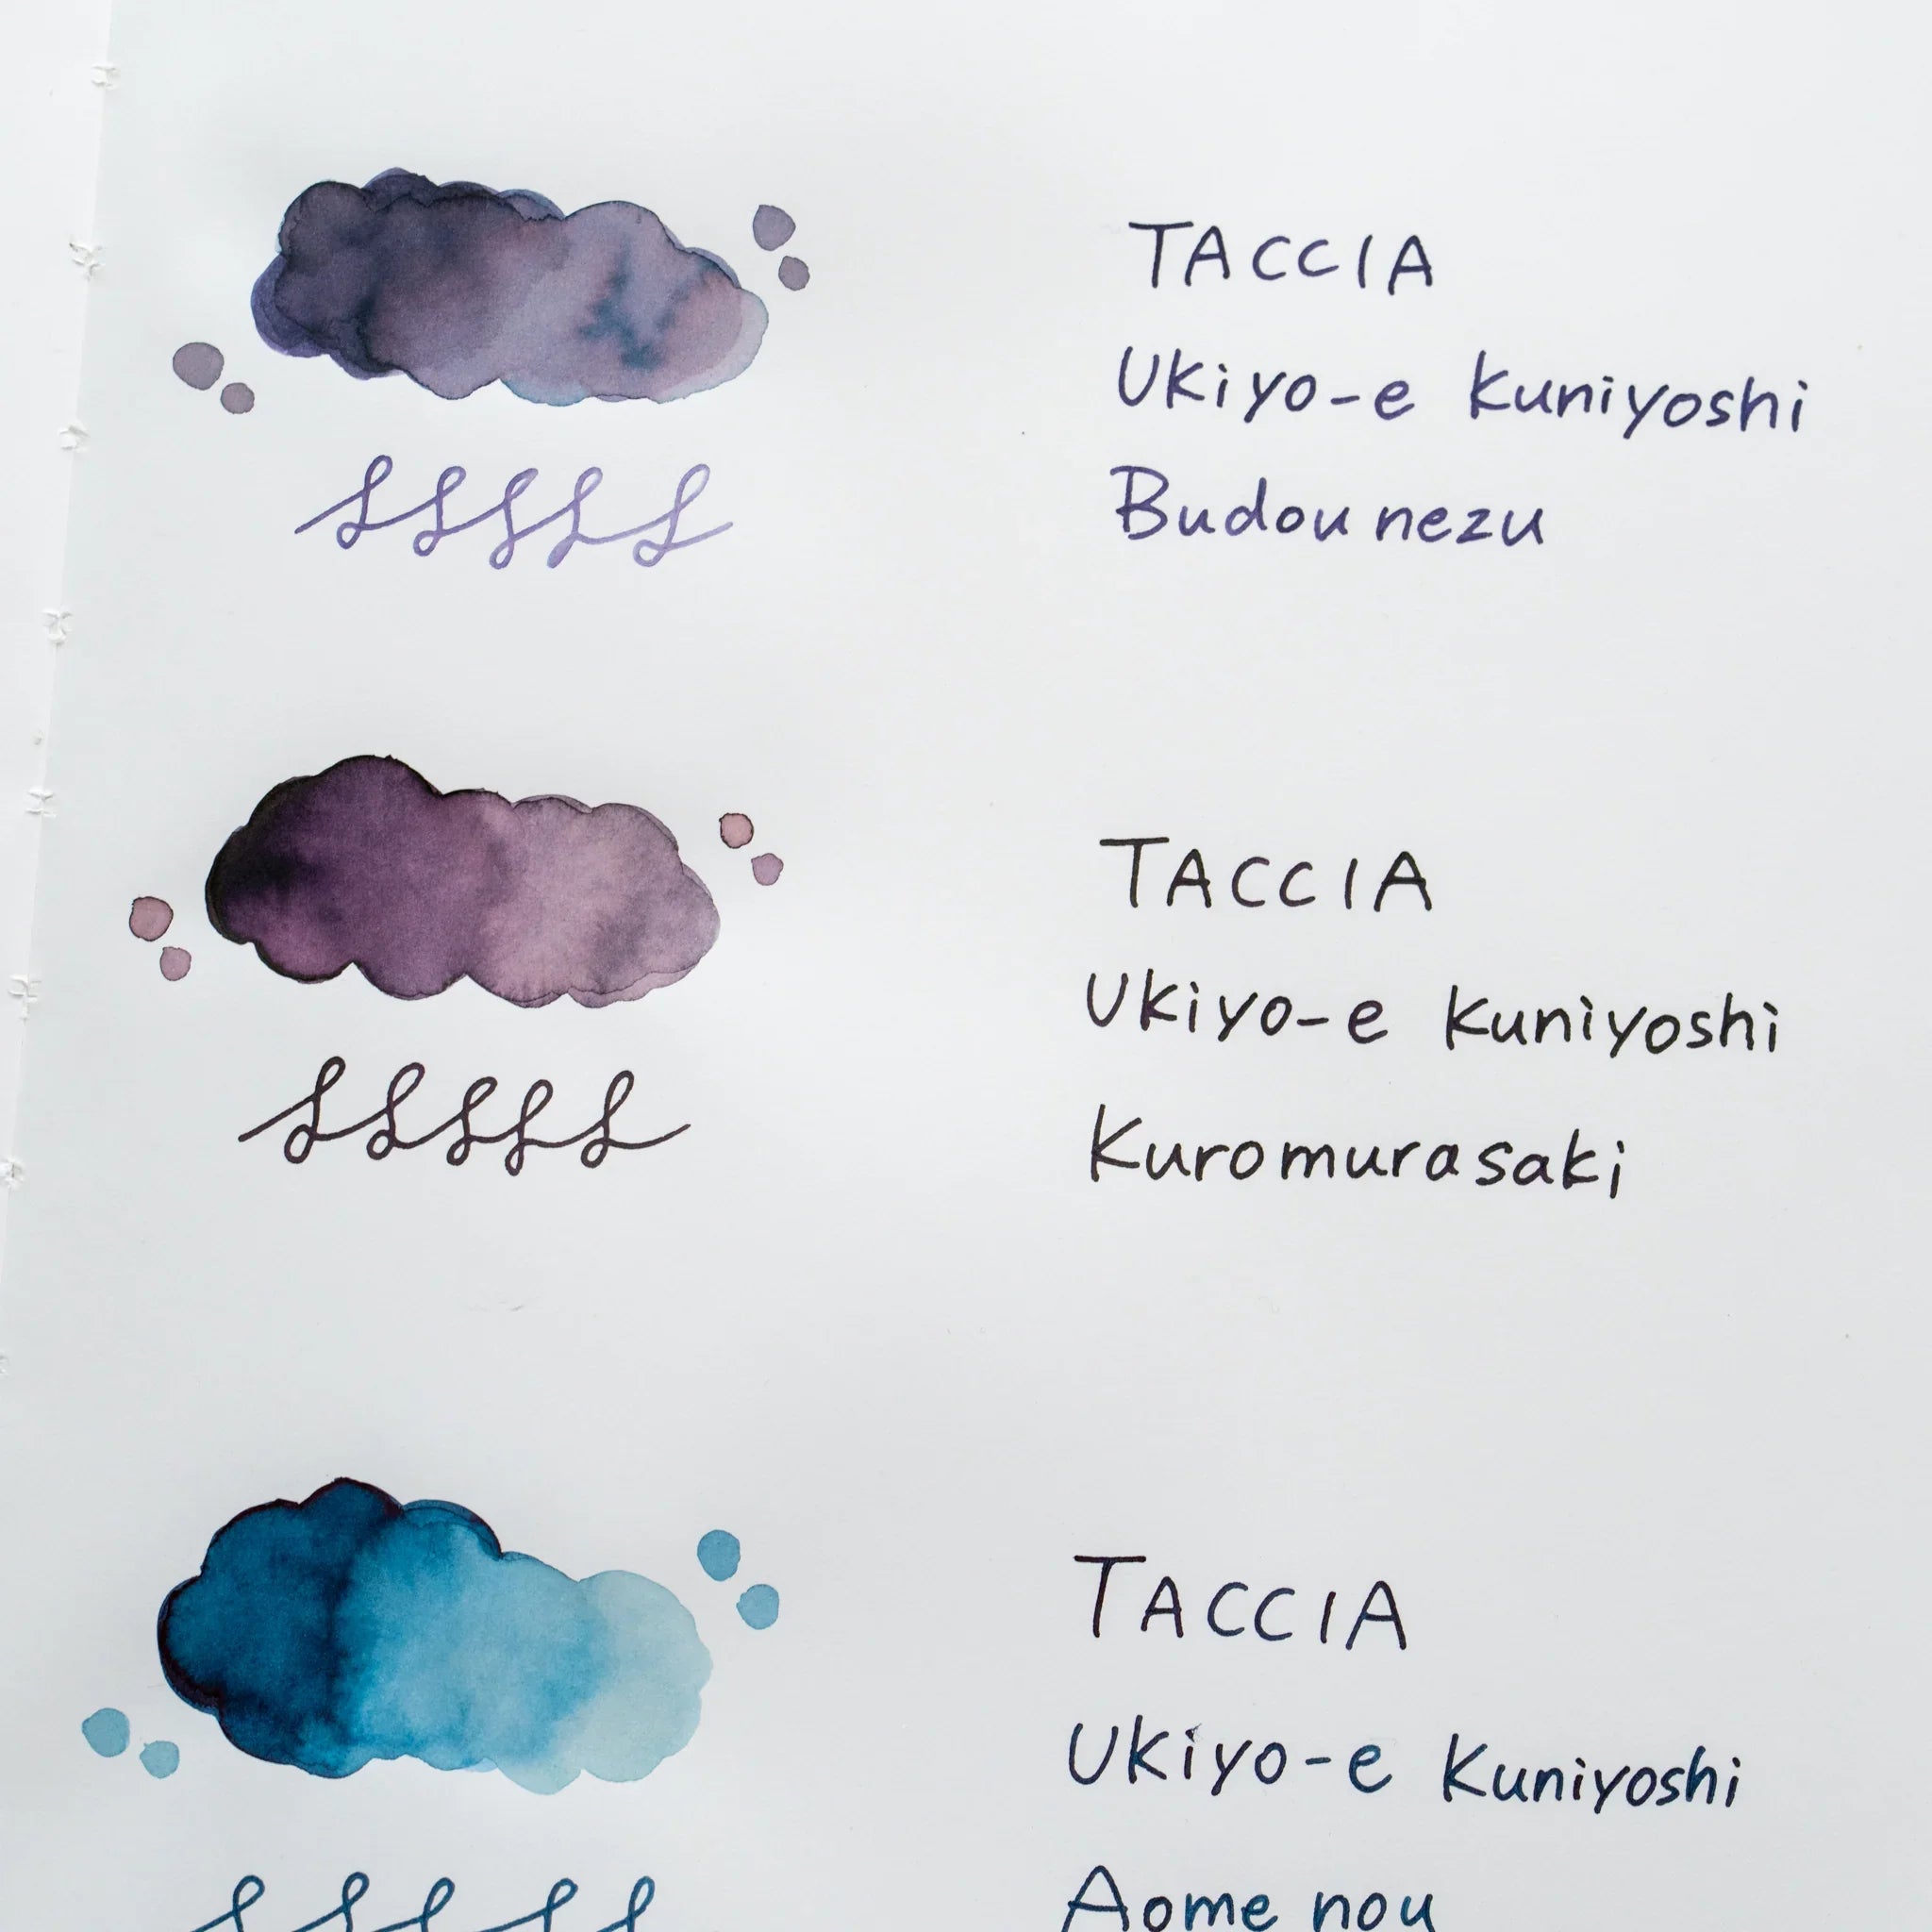 TACCIA
Ukiyo-e Kuniyoshi
Budou nezu
TACCIA
Ukiyo-e Kuniyoshi
Kuromurasaki
TACCIA
Ukiyo-e Kuniyoshi
Aome nou